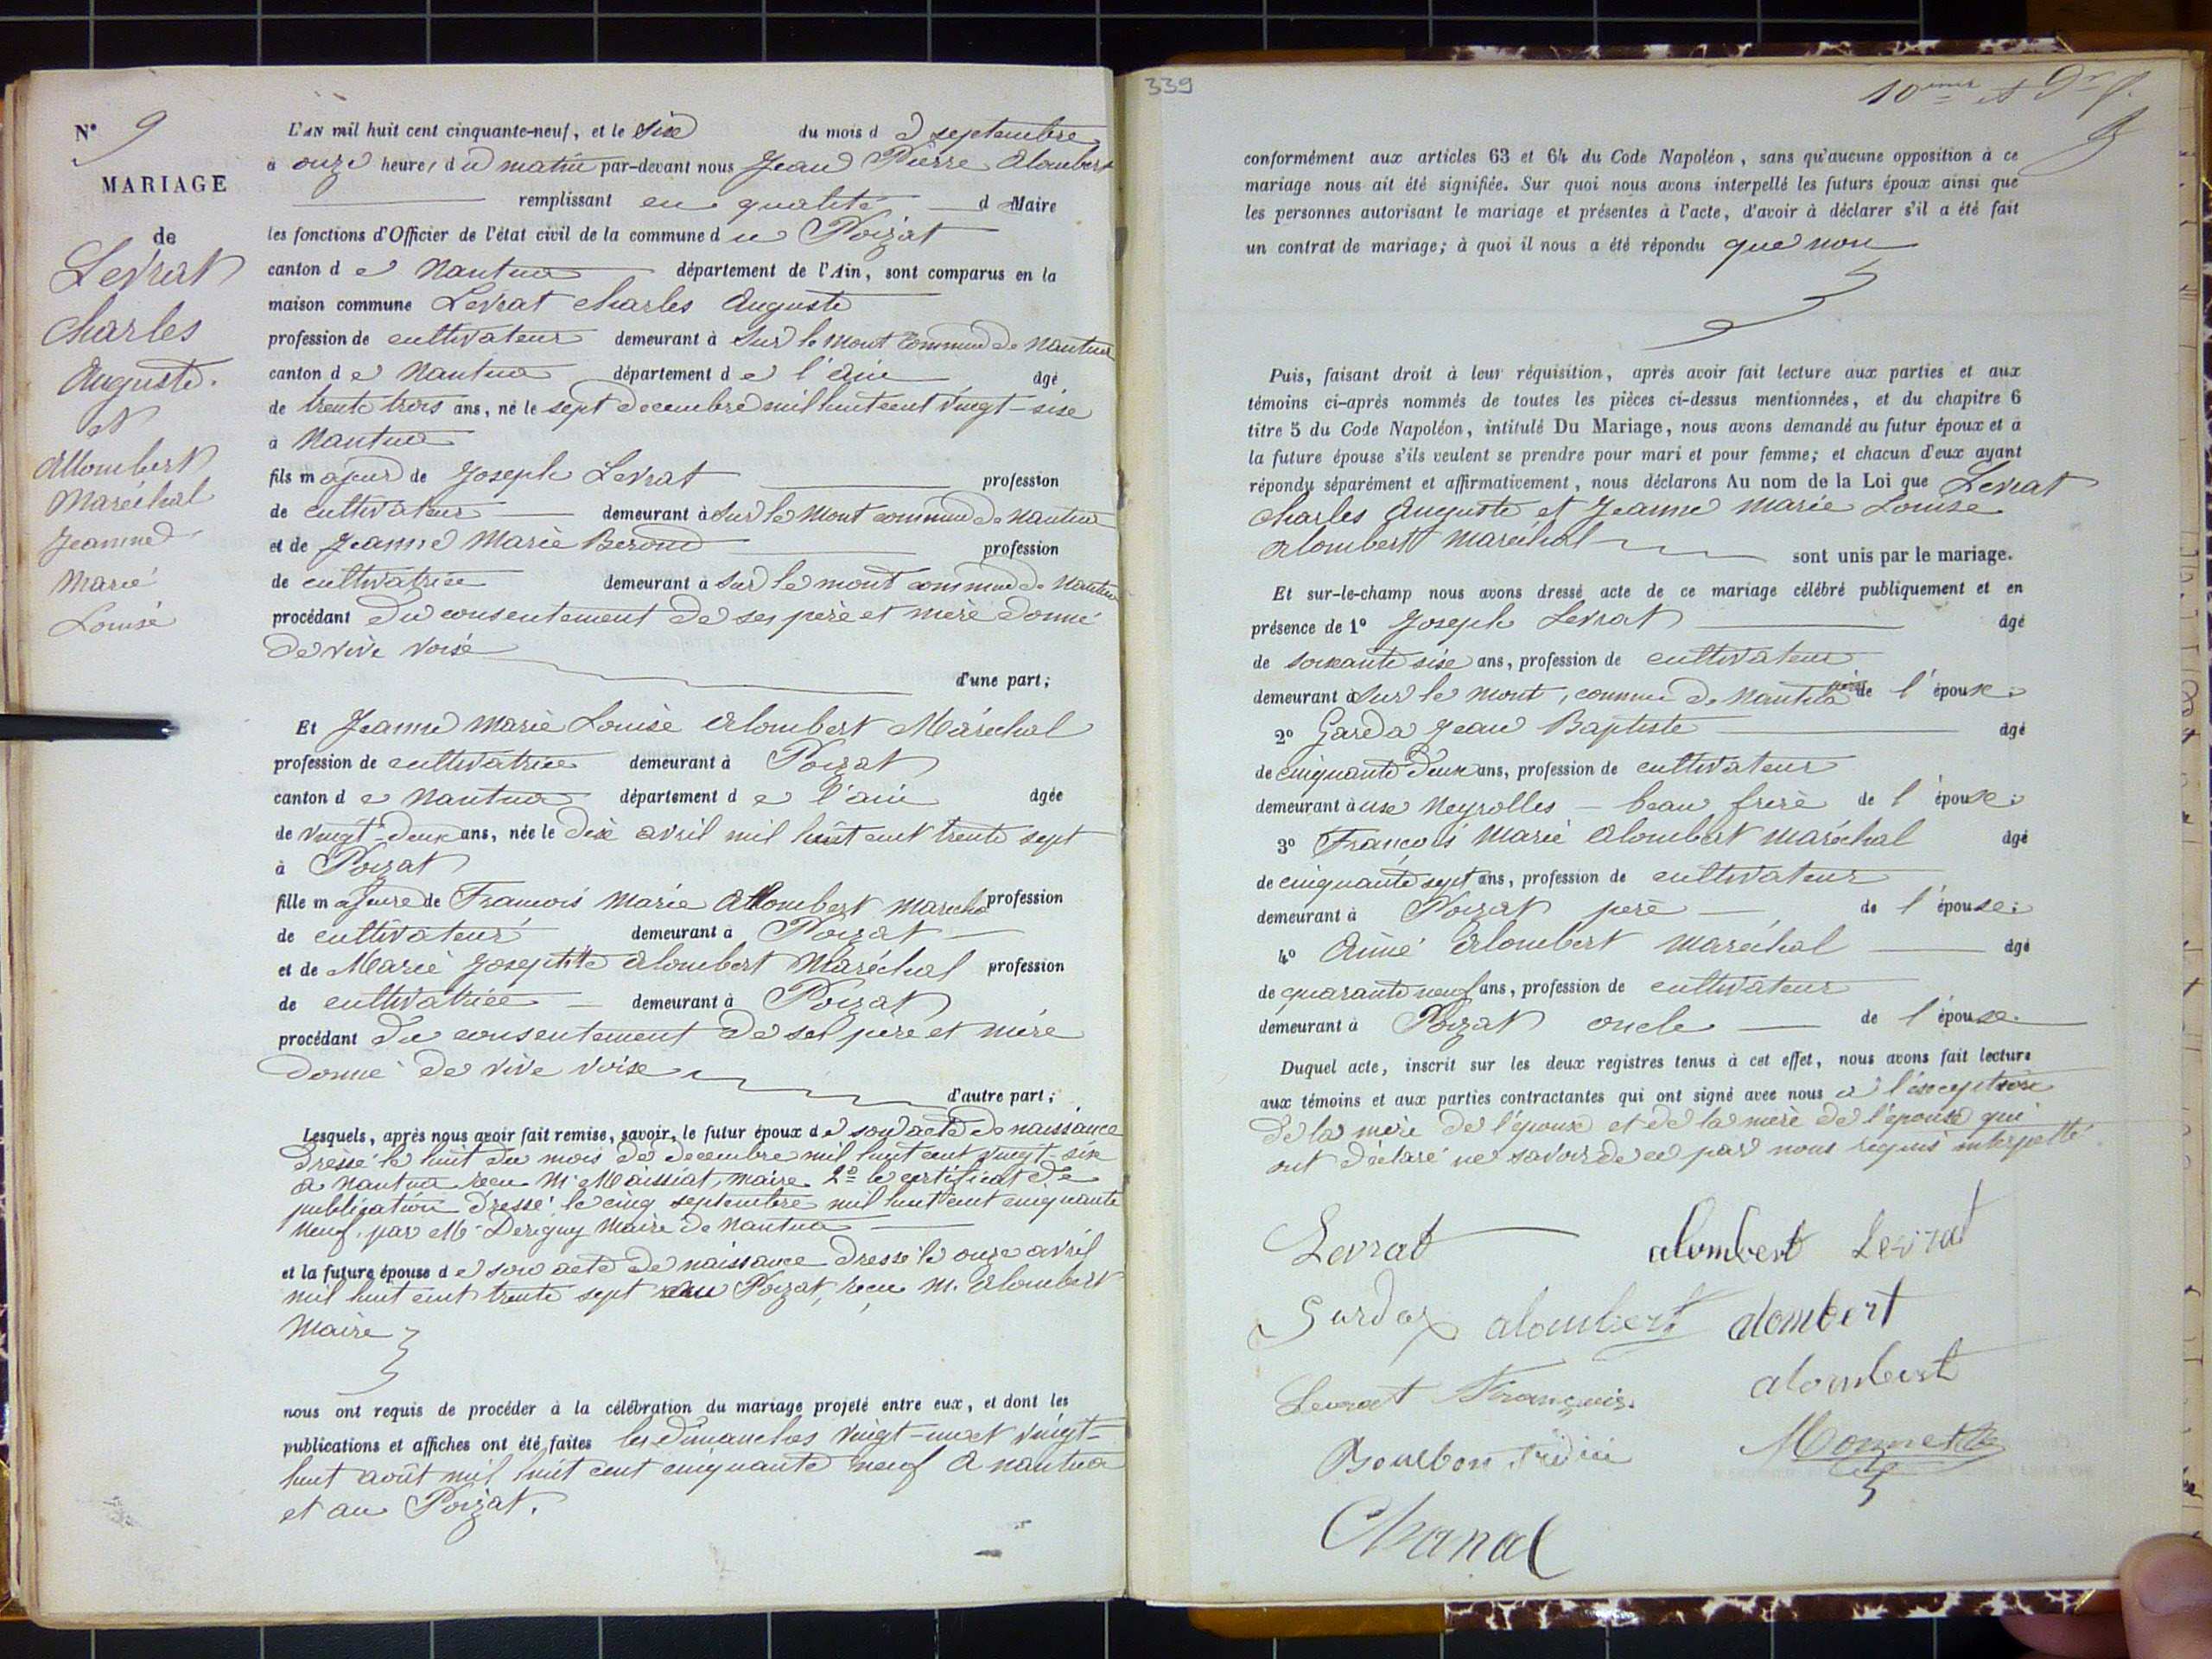 N° 9
MARIAGE
de
Levrat
Charles
Auguste.
et
Allombert
Maréchal
Jeanne
Marie
Louise
L'AN mil huit cent cinquante-neuf, et le six du mois d e septembre
à onze heures du matin par-devant nous Jean Pierre Alombert
remplissant en qualité d Maire
les fonctions d'Officier de l'état civil de la commune d u Poizat
canton d e Nantua département de l'Ain, sont comparus en la
maison commune Levrat Charles Auguste
profession de cultivateur demeurant à Sur le Mont commune de Nantua
canton d e Nantua département d e l'ain âgé
de trente trois ans, né le sept decembre mil huit cent vingt-sixe
à Nantua
fils majeur de Joseph Levrat profession
de cultivateur demeurant à Sur le Mont commune de Nantua
et de Jeanne Marie Beroud profession
de cultivatrice demeurant à Sur le mont commune de Nantua
procédant du consentement de ses père et mère donné
de vive voise
d'une part;
Et Jeanne Marie Louise Alombert Maréchal
profession de cultivatrice demeurant à Poizat
canton d e Nantua département d e l'ain âgée
de vingt-deux ans, née le dixe avril mil huit cent trente sept
à Poizat
fille majeure de Francois Marie Allombert Marechal profession
de cultivateur demeurant à Poizat
et de Marie Josephte Alombert Maréchal profession
de cultivatrice demeurant à Poizat
procédant du consentement de ses père et mère
donné de vive voise
d'autre part;
Lesquels, après nous avoir fait remise, savoir, le futur époux d e son acte de naissance
dressé le huit du mois de decembre mil huit cent vingt-six
a Nantua reçu M. Maissiat, maire 2° le certificat de
publication dressé le cinq septembre mil huit cent cinquante
neuf par Mr Deriguy Maire de Nantua
et la future épouse d e son acte de naissance dressé le onze avril
mil huit cent trente sept au Poizat, reçu M. Alombert
Maire
nous ont requis de procéder à la célébration du mariage projeté entre eux, et dont les
publications et affiches ont été faites les Dimanches vingt-un et vingt-
huit août mil huit cent cinquante neuf à Nantua
et au Poizat.
339
conformément aux articles 63 et 64 du Code Napoléon, sans qu'aucune opposition à ce
mariage nous ait été signifiée. Sur quoi nous avons interpellé les futurs époux ainsi que
les personnes autorisant le mariage et présentes à l'acte, d'avoir à déclarer s'il a été fait
un contrat de mariage; à quoi il nous a été répondu que non
Puis, faisant droit à leur réquisition, après avoir fait lecture aux parties et aux
témoins ci-après nommés de toutes les pièces ci-dessus mentionnées, et du chapitre 6
titre 5 du Code Napoléon, intitulé Du Mariage, nous avons demandé au futur époux et à
la future épouse s'ils veulent se prendre pour mari et pour femme; et chacun d'eux ayant
répondu séparément et affirmativement, nous déclarons Au nom de la Loi que Levrat
Charles Auguste et Jeanne Marie Louise
Alombert Maréchal sont unis par le mariage.
Et sur-le-champ nous avons dressé acte de ce mariage célébré publiquement et en
présence de 1° Joseph Levrat âgé
de soixante sixe ans, profession de cultivateur
demeurant à Sur le Mont, commune de Nantua père de l'épouxe:
2° Garda Jean Baptiste âgé
de cinquante deux ans, profession de cultivateur
demeurant à ux Neyrolles - beau frere de l'épouxe:
3° Francois Marie Alombert Maréchal âgé
de cinquante sept ans, profession de cultivateur
demeurant à Poizat pere de l'épouse:
4° Aimé Alombert Maréchal âgé
de quarante neuf ans, profession de cultivateur
demeurant à Poizat oncle de l'épouse.
Duquel acte, inscrit sur les deux registres tenus à cet effet, nous avons fait lecture
aux témoins et aux parties contractantes qui ont signé avec nous a l'exception
de la mère de l'épouxe et de la mere de l'epouse qui
ont déclaré ne savoir de ce par nous requis interpellé
Levrat alombert Levrat
Gardaz alombert alombert
Levrat François. alombert
Bourbon Monnet
Chanal